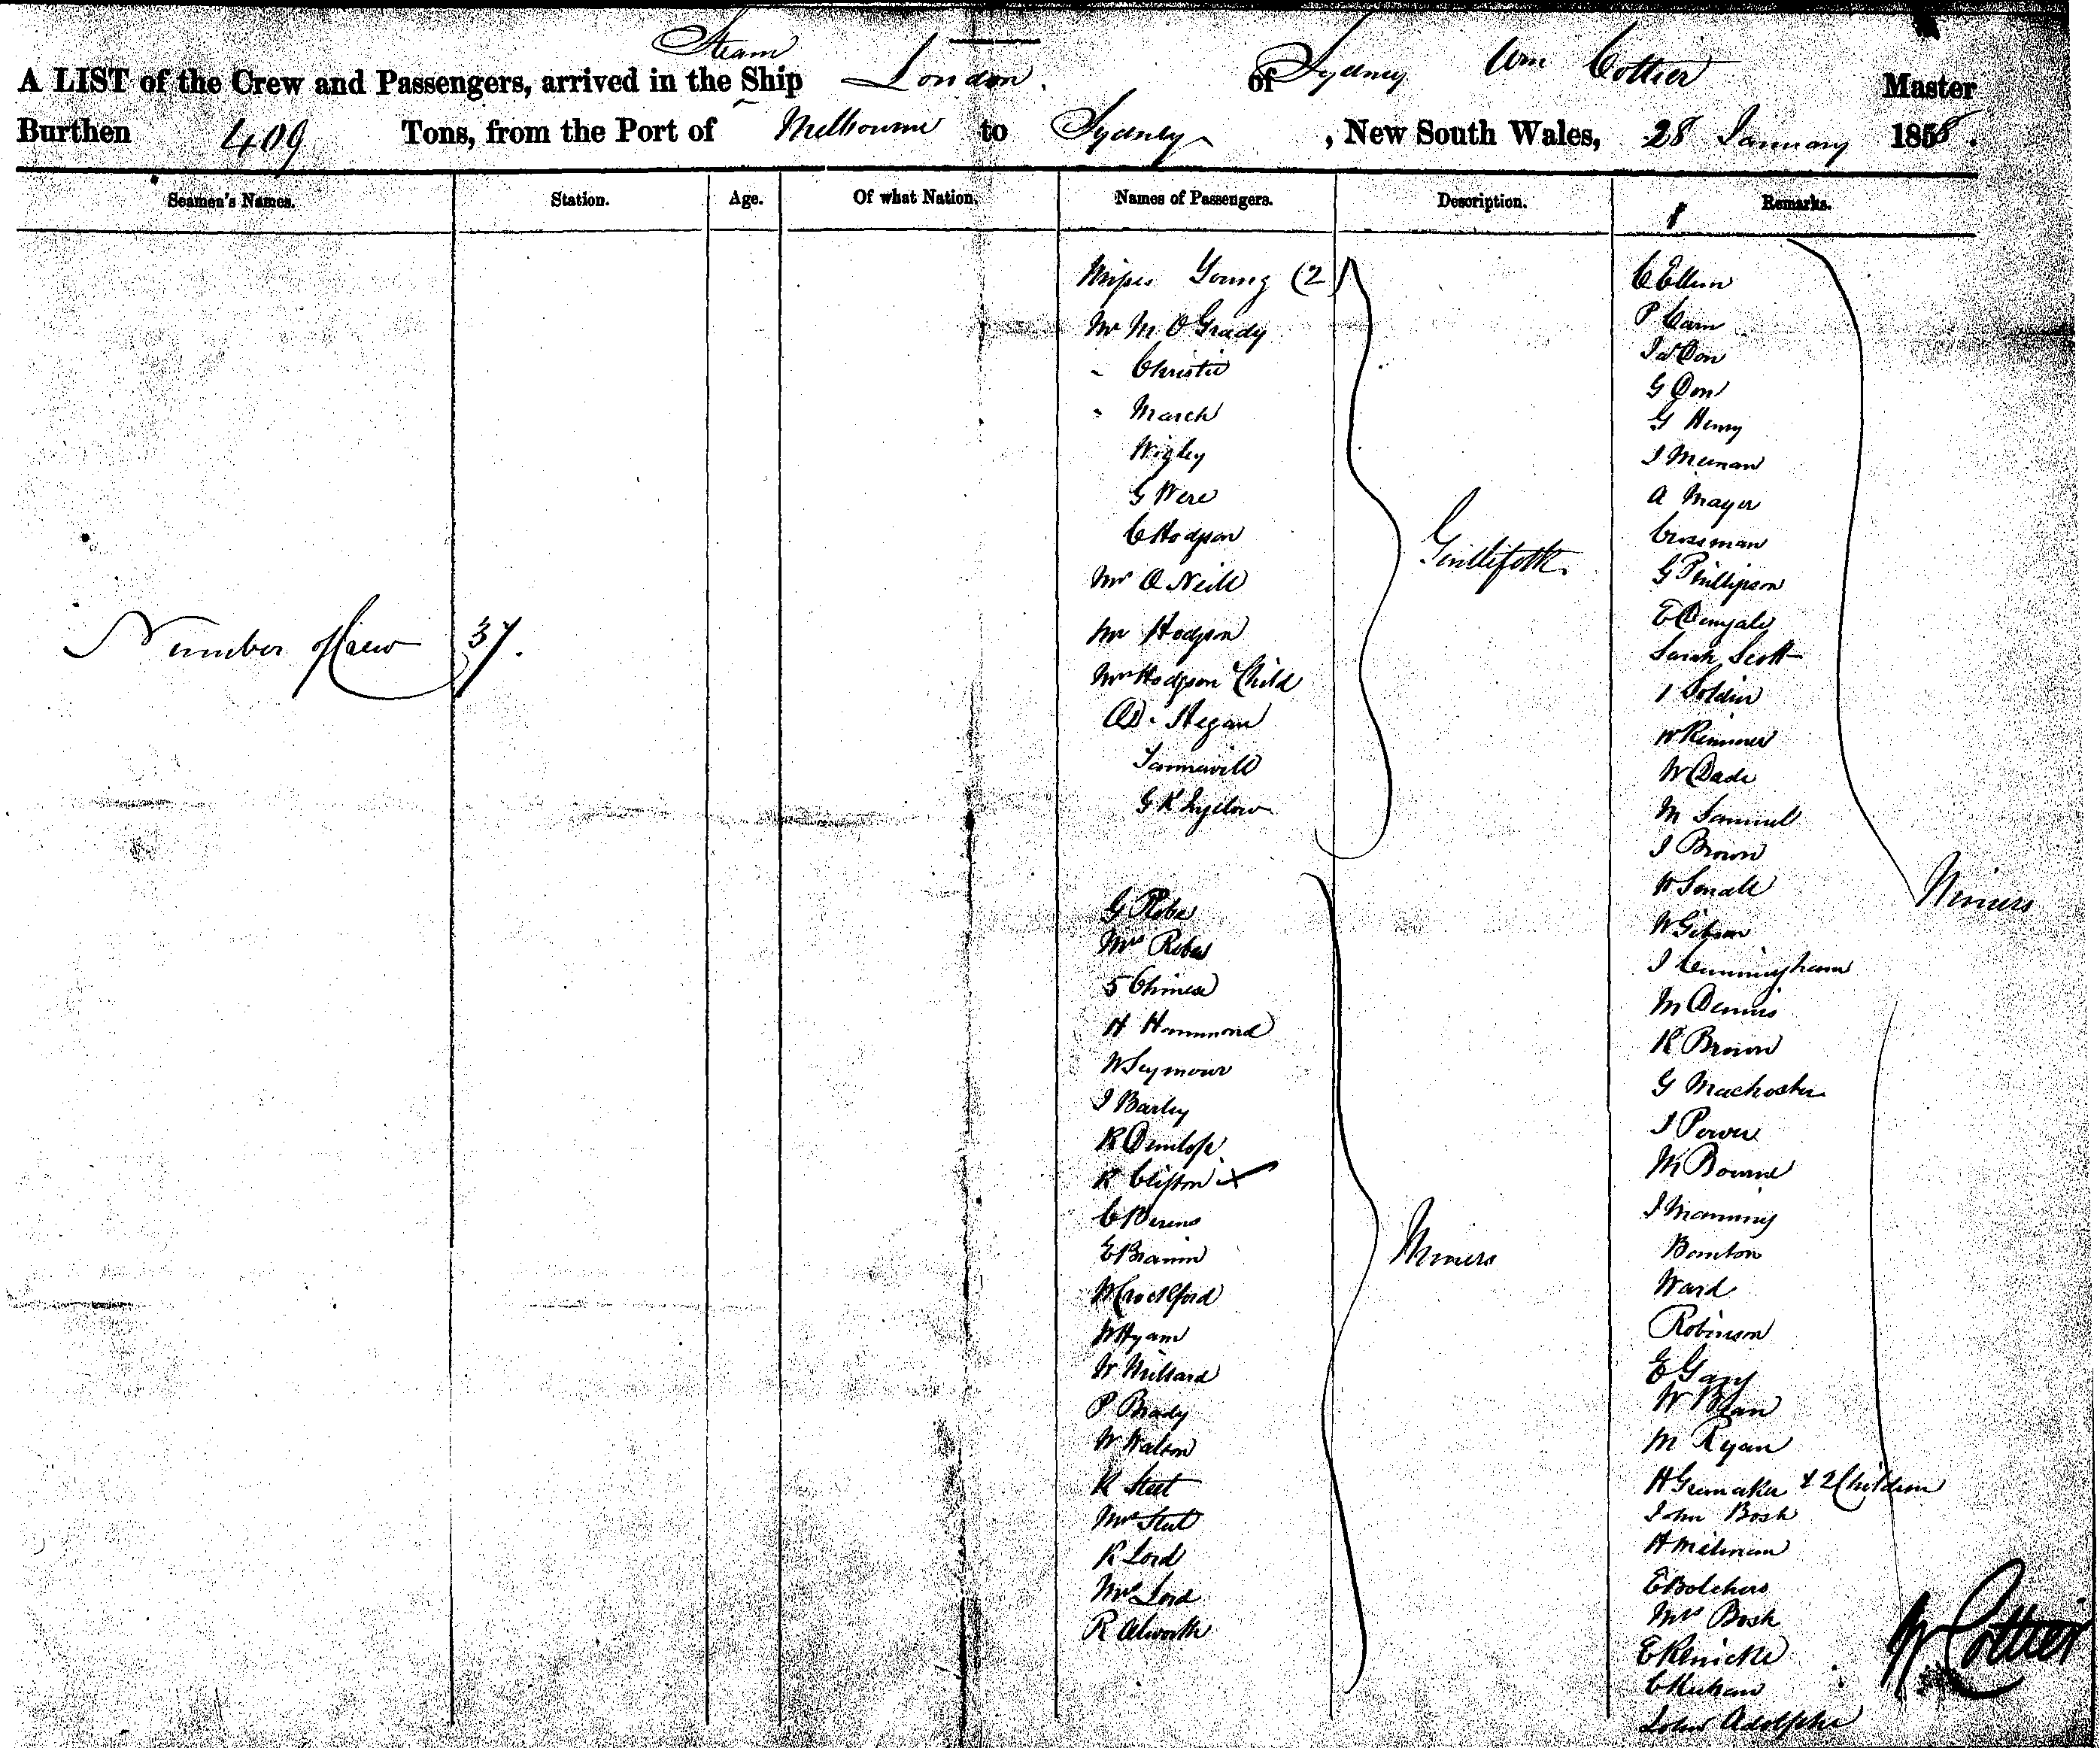 Steam
A LIST of the Crew and Passengers, arrived in the Ship London of Sydney Wm Cottier Master
Burthen 409 Tons, from the Port of Melbourne to Sydney, New South Wales, 28 January 1858.
Seamen's Names. Station. Age. Of what Nation. Names of Passengers. Description. Remarks.
Number of Crew 37.
Misses Young (2)
Mr M O Grady
" Christie
" March
Wigley
G Were
C Hodgson
Mr O Neill
Mr Hodgson
Mrs Hodgson Child
Hegan
G R
Gentlefolk.
G Robe
Mrs Robe
5 Chinese
H Hammond
W Seymour
J Barley
R Dunlop
R Clifton x
C
E
W Crockford
W Hyam
W Millard
P Brady
W Walton
R Steet
Mrs Steet
R Lord
Mrs Lord
R Alworth
Miners
C Ellem
P Carn
Jas Don
G Don
G Henry
J Meenan
A Mayer
Crossman
G Phillipson
E
Sarah Scott
1 Soldier
W Rimmer
W Dade
M Samuel
J Brown
W Small
W Gibson
J Cunningham
M Dennis
R Brown
G
J Power
W Bourne
J Manning
Ward
Robinson
E
W
M Ryan
H & 2 Children
John Bosh
H
E Bolchers
Mrs Bosh
E
C
John Adolphe
Miners
W Cottier